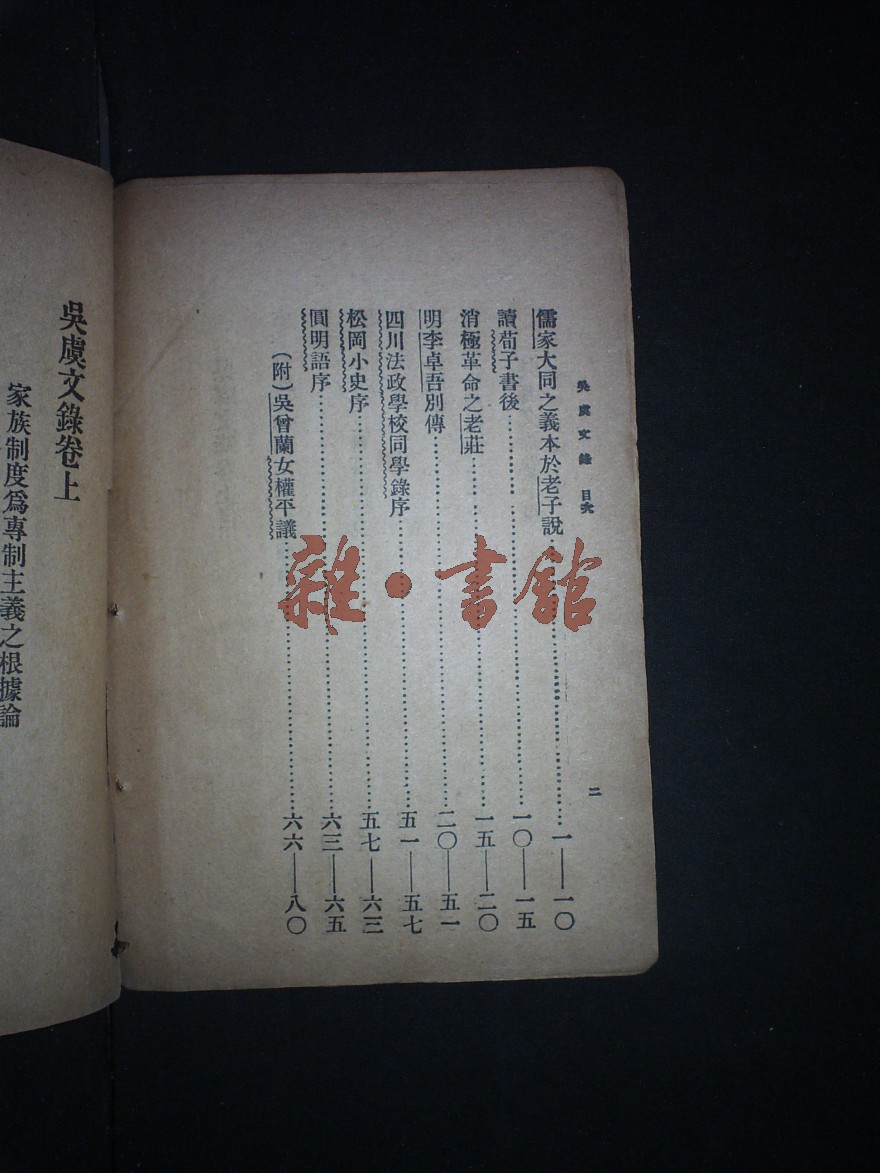 吳虞文錄　目次
二
儒家大同之義本於老子說……一——一〇
讀荀子書後……一〇——一五
消極革命之老莊……一五——二〇
明李卓吾別傳……二〇——五一
四川法政學校同學錄序……五一——五七
松岡小史序……五七——六三
圓明語序……六三——六五
（附）吳曾蘭女權平議……六六——八〇
吳虞文錄卷上
家族制度爲專制主義之根據論
雜·書館